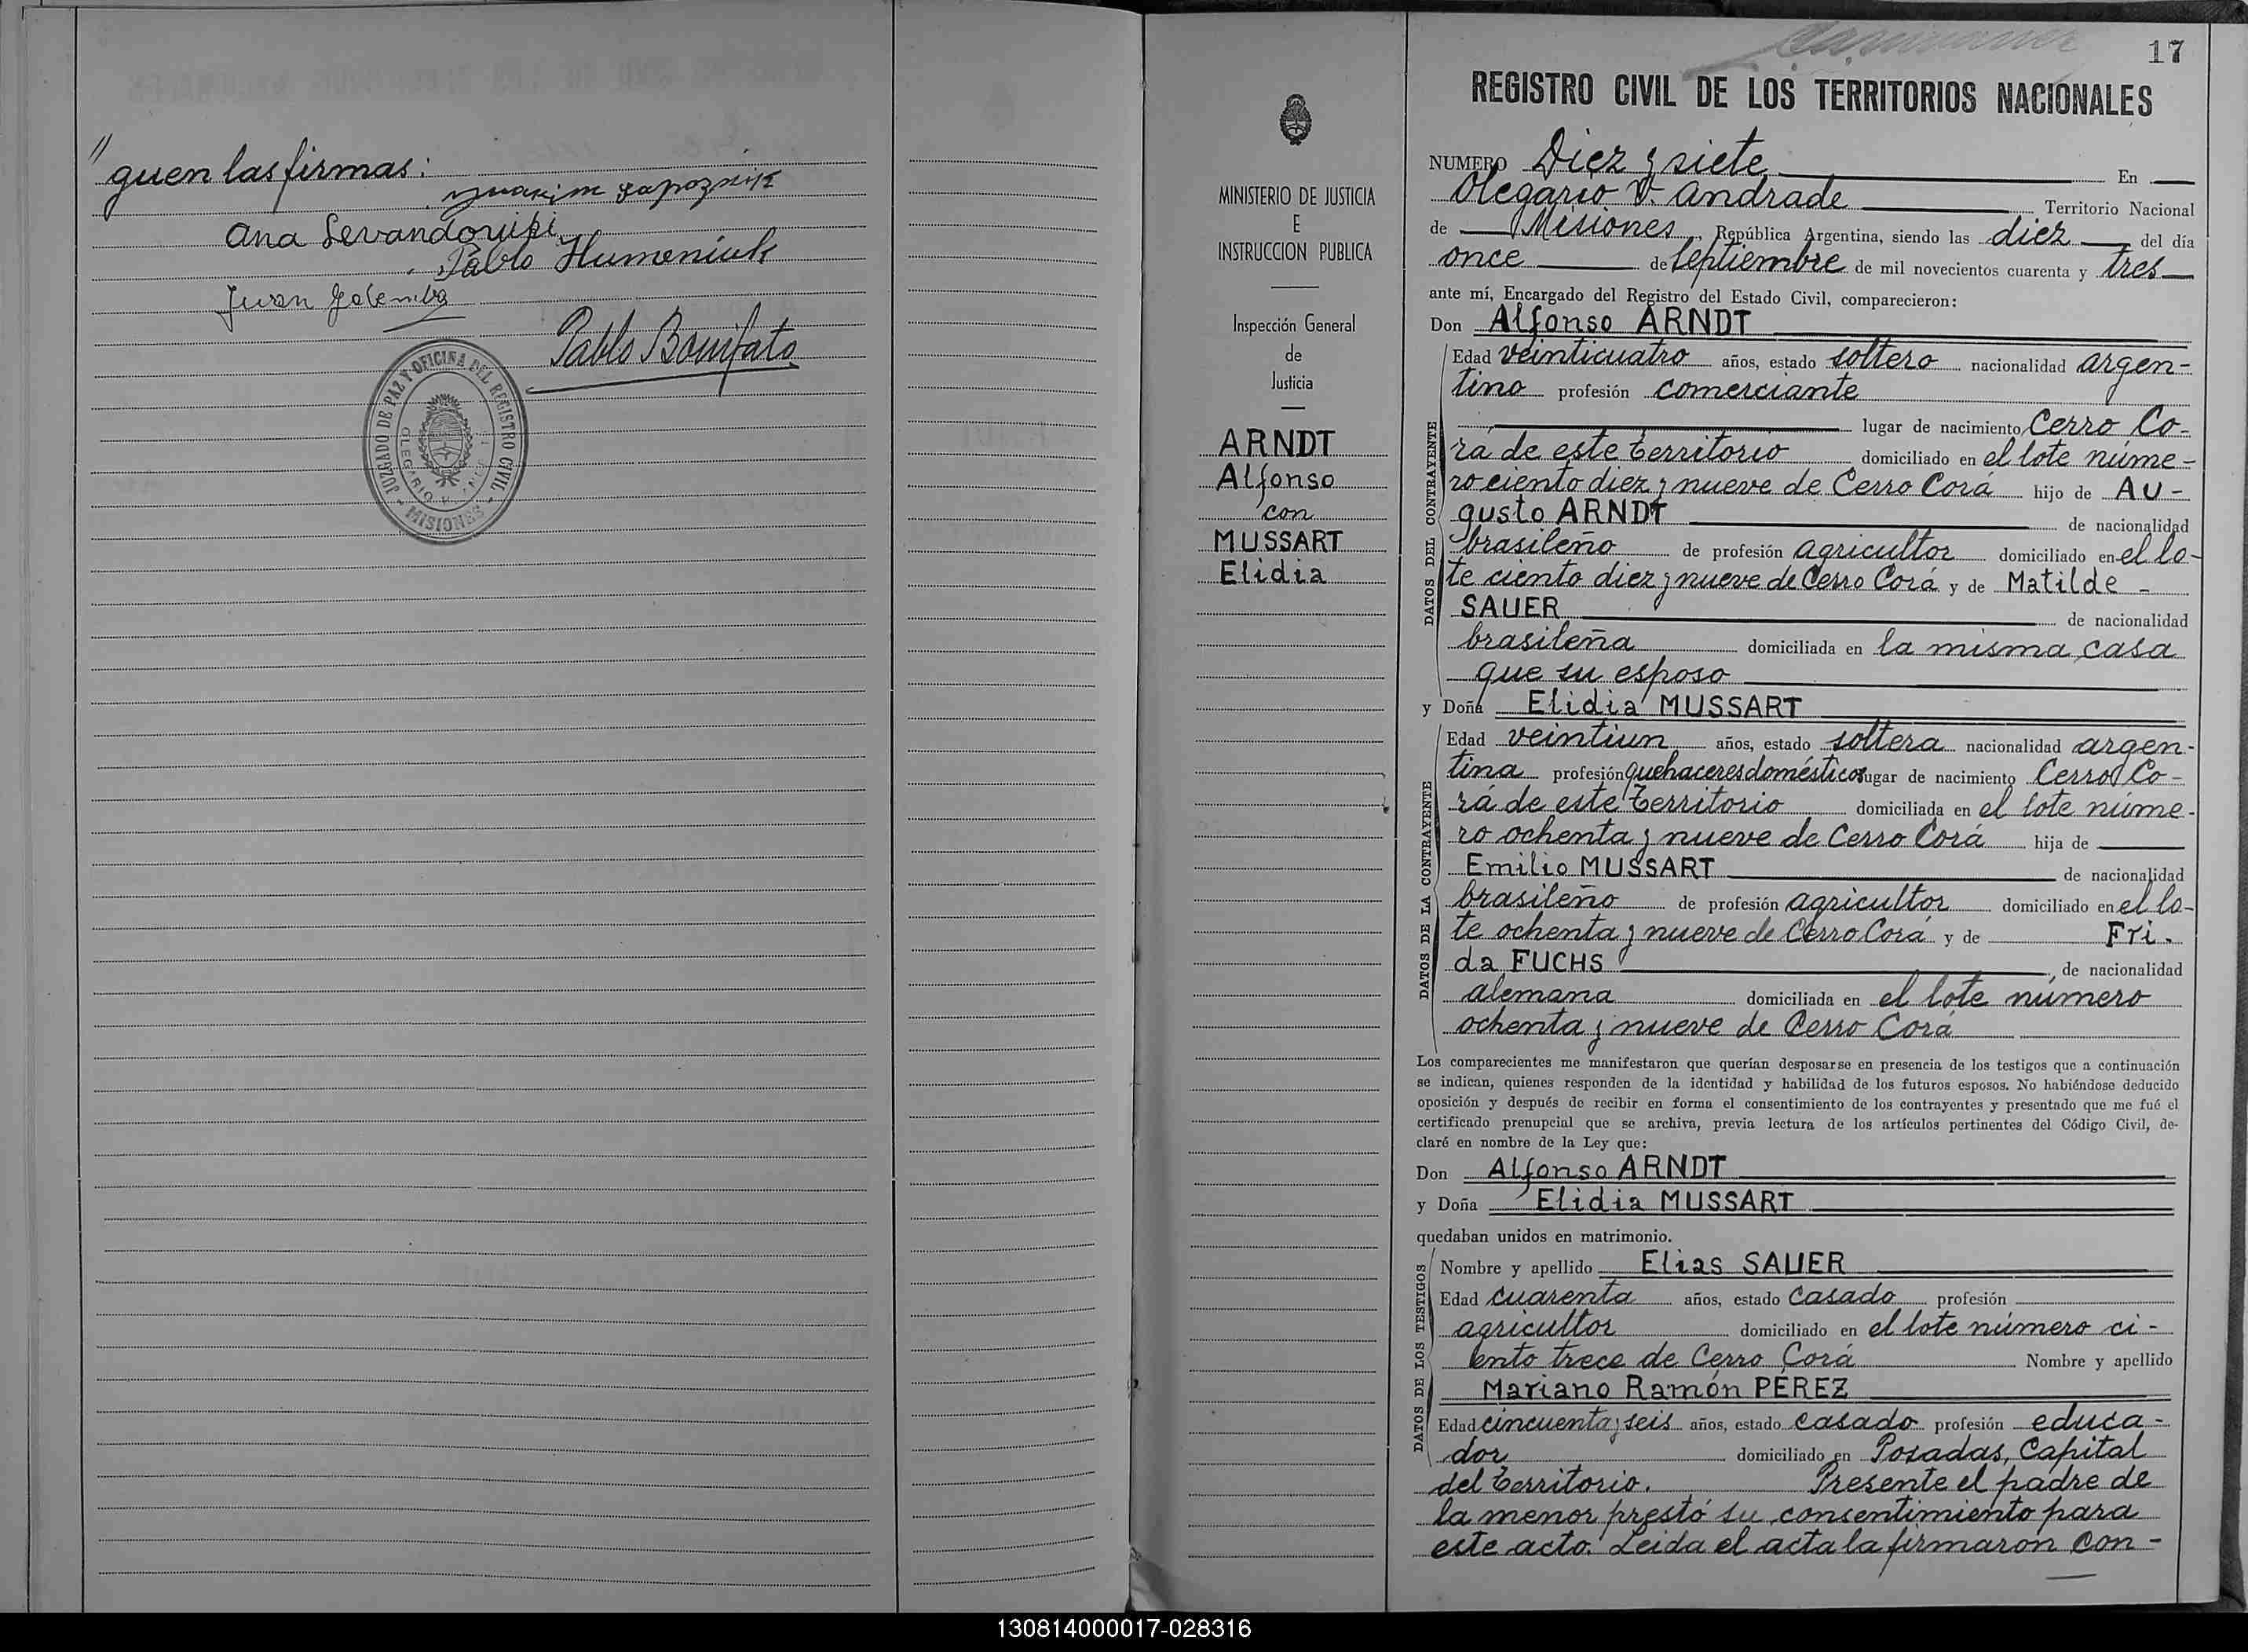 " guen las firmas:
Ana Levandoviski
Pablo Humeniuk
Juan Golemba
Pablo Bonifato
JUZGADO DE PAZ Y OFICINA DEL REGISTRO CIVIL
- MISIONES -
17
REGISTRO CIVIL DE LOS TERRITORIOS NACIONALES
MINISTERIO DE JUSTICIA
E
INSTRUCCION PUBLICA
Inspección General
de
Justicia
ARNDT
Alfonso
con
MUSSART
Elidia
NUMERO Diez y siete En
Olegario V. Andrade Territorio Nacional
de Misiones, República Argentina, siendo las diez del día
once de Septiembre de mil novecientos cuarenta y tres
ante mí, Encargado del Registro del Estado Civil, comparecieron:
Don Alfonso ARNDT
DATOS DEL CONTRAYENTE
Edad veinticuatro años, estado soltero nacionalidad argen-
tino profesión comerciante
lugar de nacimiento Cerro Co-
rá de este territorio domiciliado en el lote núme-
ro ciento diez y nueve de Cerro Corá hijo de Au-
gusto ARNDT de nacionalidad
brasileño de profesión agricultor domiciliado en el lo-
te ciento diez y nueve de Cerro Corá y de Matilde -
SAUER de nacionalidad
brasileña domiciliada en la misma casa
que su esposo
y Doña Elidia MUSSART
DATOS DE LA CONTRAYENTE
Edad veintiun años, estado soltera nacionalidad argen-
tina profesión quehaceres domésticos lugar de nacimiento Cerro Co-
rá de este territorio domiciliada en el lote núme-
ro ochenta y nueve de Cerro Corá hija de
Emilio MUSSART de nacionalidad
brasileño de profesión agricultor domiciliado en el lo-
te ochenta y nueve de Cerro Corá y de Fri-
da FUCHS, de nacionalidad
alemana domiciliada en el lote número
ochenta y nueve de Cerro Corá
Los comparecientes me manifestaron que querían desposarse en presencia de los testigos que a continuación
se indican, quienes responden de la identidad y habilidad de los futuros esposos. No habiéndose deducido
oposición y después de recibir en forma el consentimiento de los contrayentes y presentado que me fué el
certificado prenupcial que se archiva, previa lectura de los artículos pertinentes del Código Civil, de-
claré en nombre de la Ley que:
Don Alfonso ARNDT
y Doña Elidia MUSSART
quedaban unidos en matrimonio.
DATOS DE LOS TESTIGOS
Nombre y apellido Elias SAUER
Edad cuarenta años, estado casado profesión
agricultor domiciliado en el lote número ci-
ento trece de Cerro Corá Nombre y apellido
Mariano Ramón PÉREZ
Edad cincuenta y seis años, estado casado profesión educa-
dor domiciliado en Posadas, Capital
del territorio. Presente el padre de
la menor prestó su consentimiento para
este acto. Leida el acta la firmaron con-
130814000017-028316